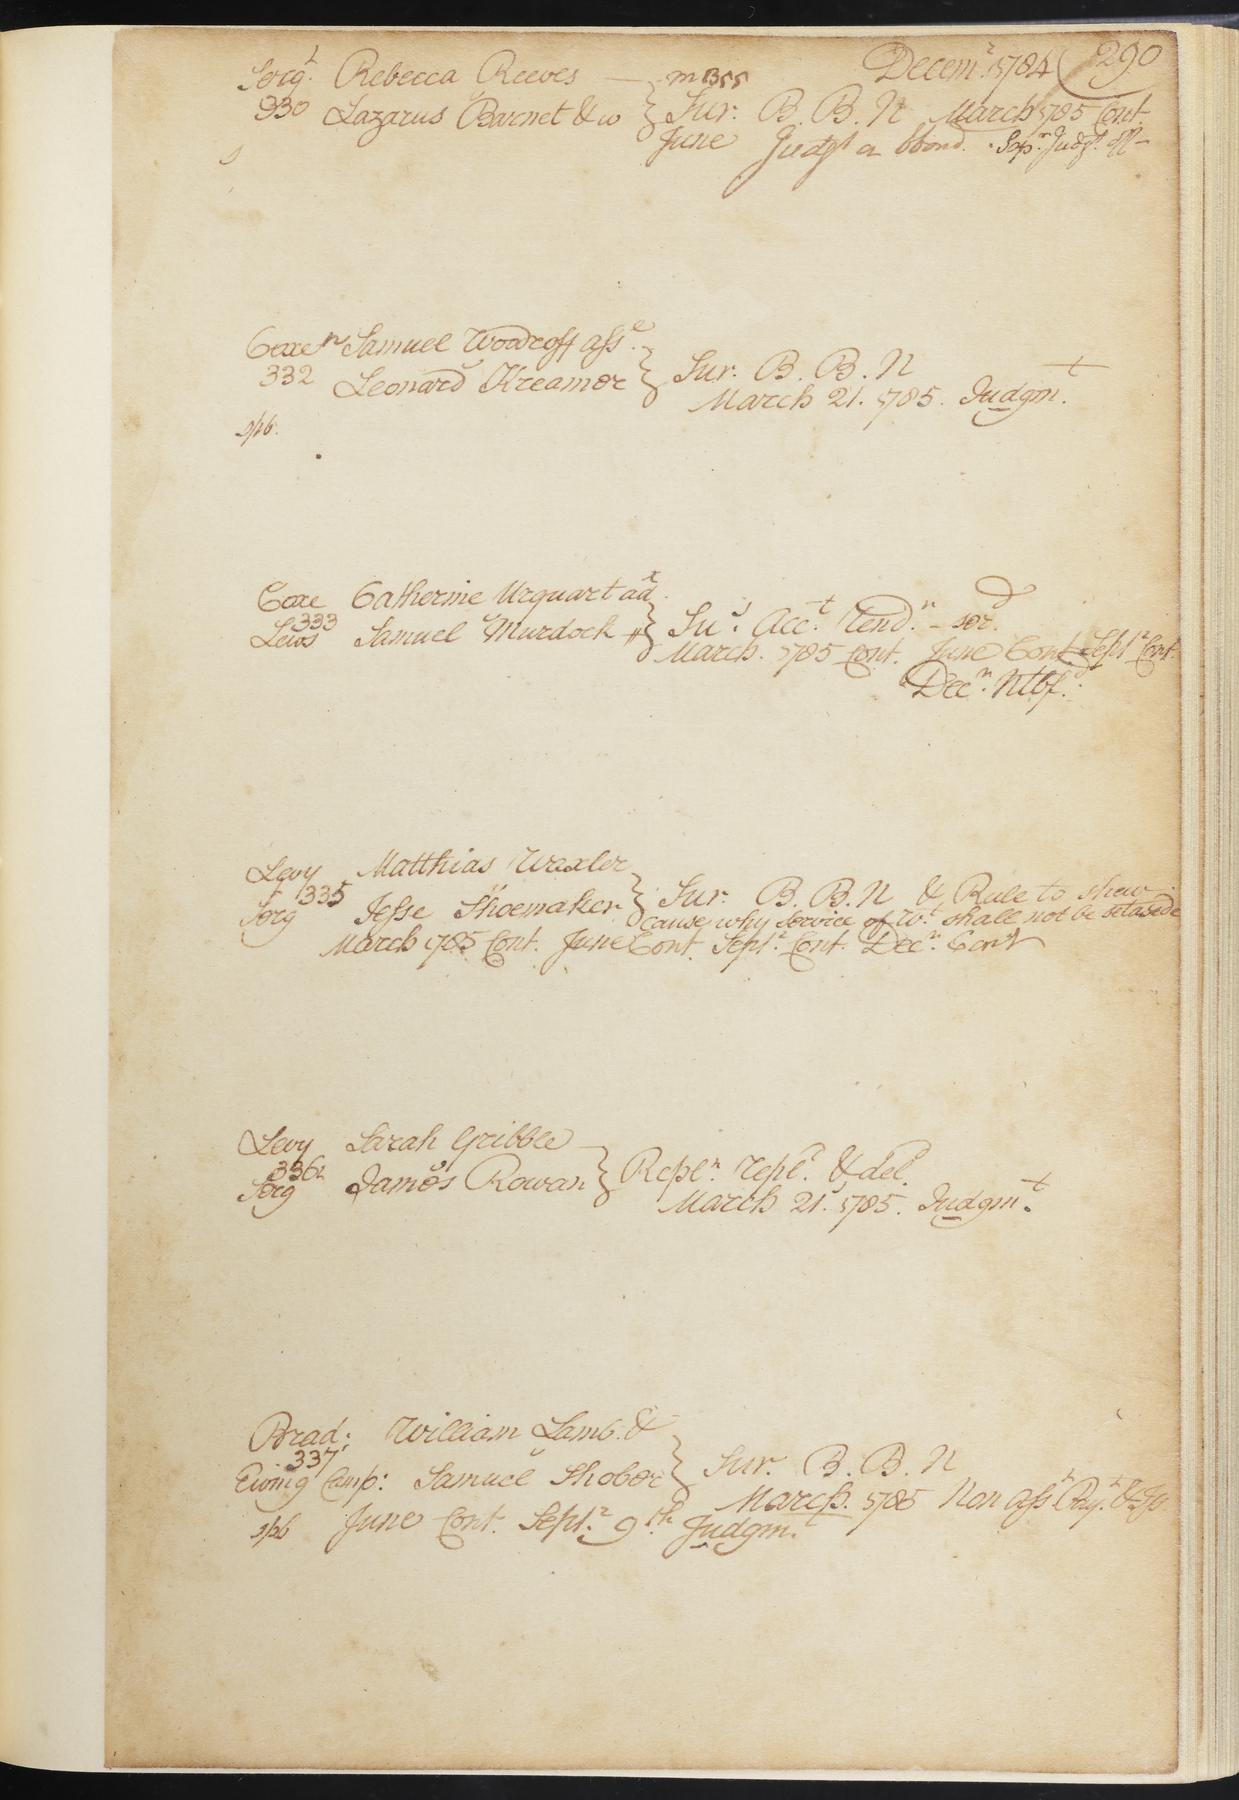 Decem.r 1784 290
Serg.t Rebecca Reeves
330 Lazarus Barnet & w } Sur. B. B. N March 1785 Cont.
June Judgt a bond. Sep.r Judgt. off
Coxe Samuel Woodroff asse.
332 Leonard Kreamer } Sur. B. B. N
March 21. 1785. Judgm.t
spb.
Coxe Catherine Urquart adx.
333
Lews Samuel Murdock } Su.r Acc.t Cend.n - ser.d
March. 1785 Cont. June Cont Sept.r Cont.
Dec.r Ntbf.d
Levy Matthias Waxler
335
Serg Jesse Shoemaker } Sur. B. B. N & Rule to shew
cause why service of W.t shall not be set aside
March 1785 Cont. June Cont. Sept.r Cont. Dec.r Cont
Levy Sarah Gribble
336
Serg James Rowan } Repl.n repl.d & del.d
March 21. 1785. Judgm.t
Brad: William Lamb &
337
Ewing Camp: Samuel Shober } Sur. B. B. N
March. 1785 Non ass.t Pay.t & Is.
spb June Cont. Sept.r 9th. Judgm.t